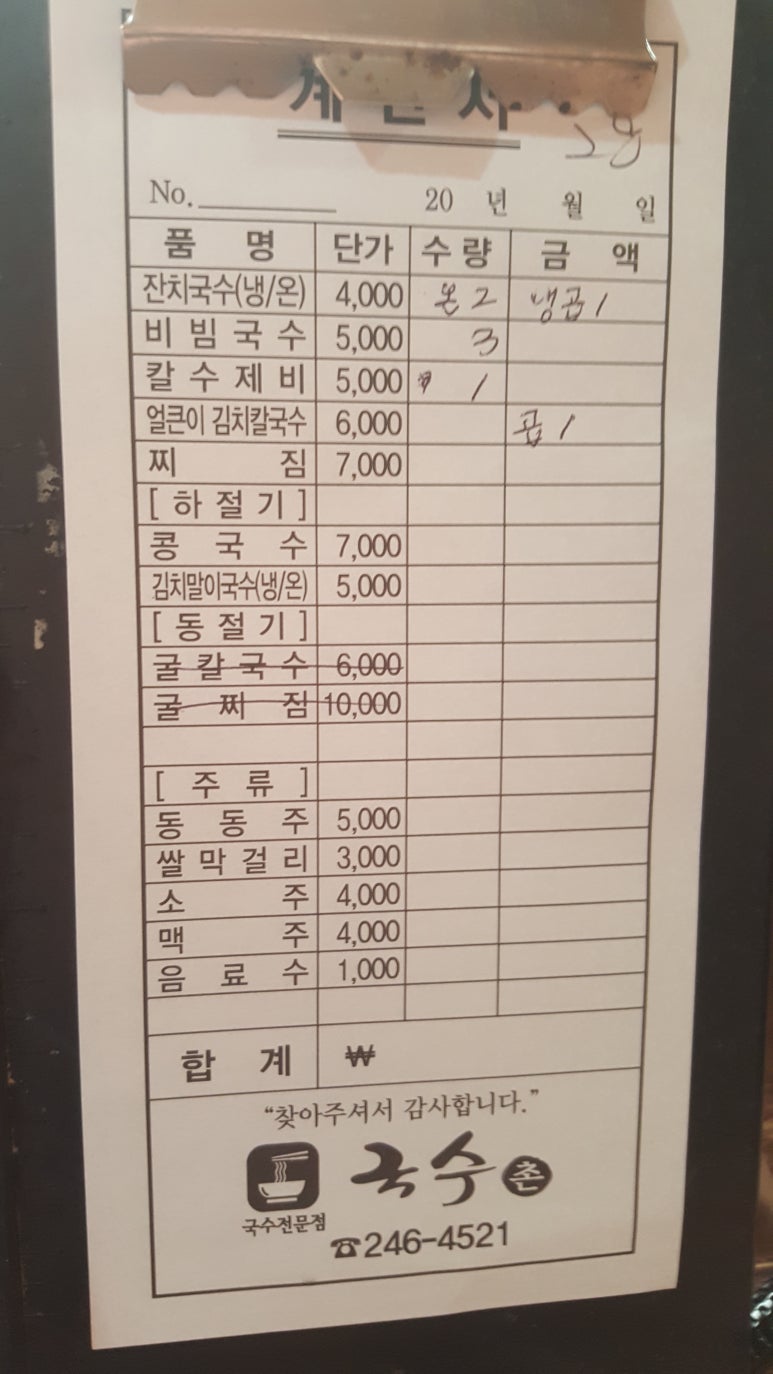 계산서
No. 20 년 월 일
품 명 단가 수량 금 액
잔치국수(냉/온) 4,000 온2 냉곱1
비빔국수 5,000 3
칼수제비 5,000 1
얼큰이 김치칼국수 6,000 곱1
찌 짐 7,000
[하절기]
콩 국 수 7,000
김치말이국수(냉/온) 5,000
[동절기]
굴칼국수 6,000
굴 찌 짐 10,000
[ 주 류 ]
동 동 주 5,000
쌀막걸리 3,000
소 주 4,000
맥 주 4,000
음 료 수 1,000
합 계 ₩
“찾아주셔서 감사합니다.”
국수촌
국수전문점
☎246-4521